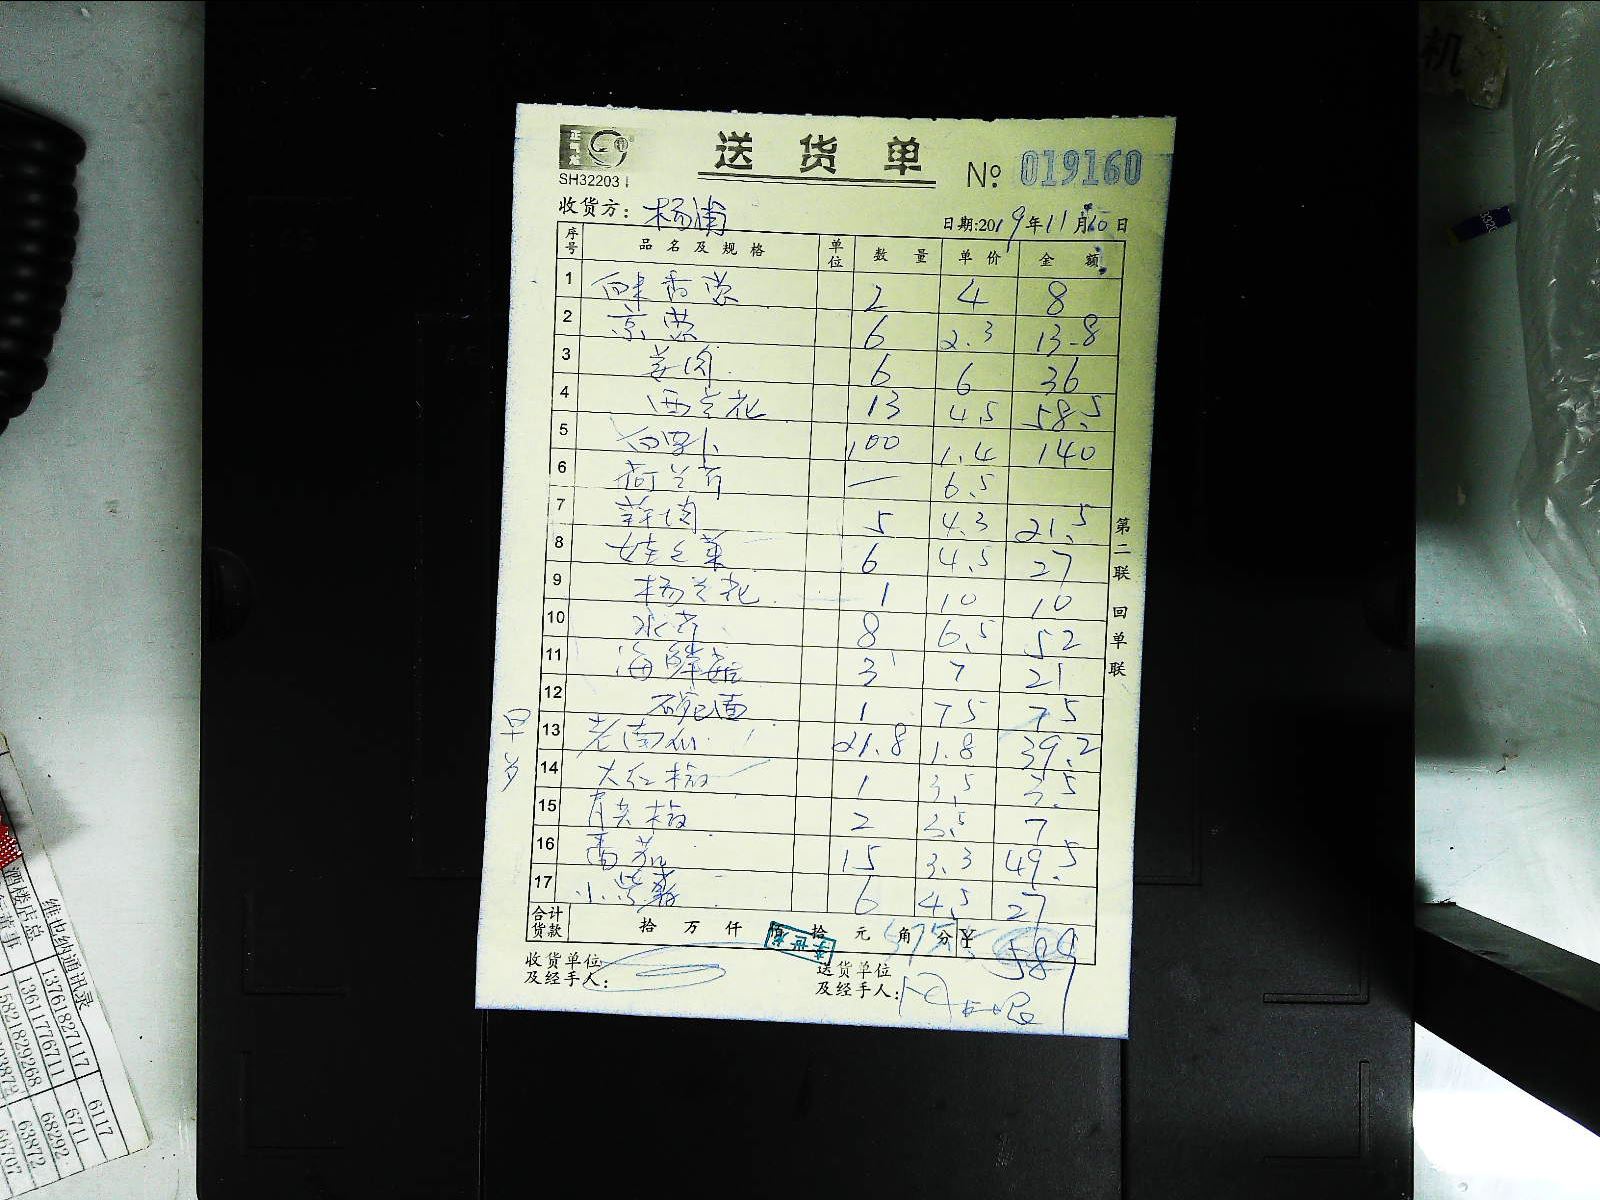 正气龙
SH32203
送 货 单
№: 019160
收货方: 杨浦
日期:2019年11月10日
序号 品 名 及 规 格 单位 数 量 单 价 金 额
1 2 4 8
2 京葱 6 2.3 13.8
3 姜肉 6 6 36
4 西兰花 13 4.5 58.5
5 白罗卜 100 1.4 140
6 荷兰芹 — 6.5
7 5 4.3 21.5
8 娃娃菜 6 4.5 27
9 杨兰花 1 10 10
10 水芹 8 6.5 52
11 海鲜菇 3 7 21
12 1 75 75
13 老南瓜 21.8 1.8 39.2
14 大红椒 1 3.5 3.5
15 青尖椒 2 3.5 7
16 番茄 15 3.3 49.5
17 小紫薯 6 4.5 27
合计货款 拾 万 仟 佰 拾 元 角 分 ¥ 589
收货单位及经手人:
送货单位及经手人:
第二联 回单联
机
维也纳通讯录
酒楼店总 13761827117 6117
13611776711 6711
15821829268 68292
63872
66707